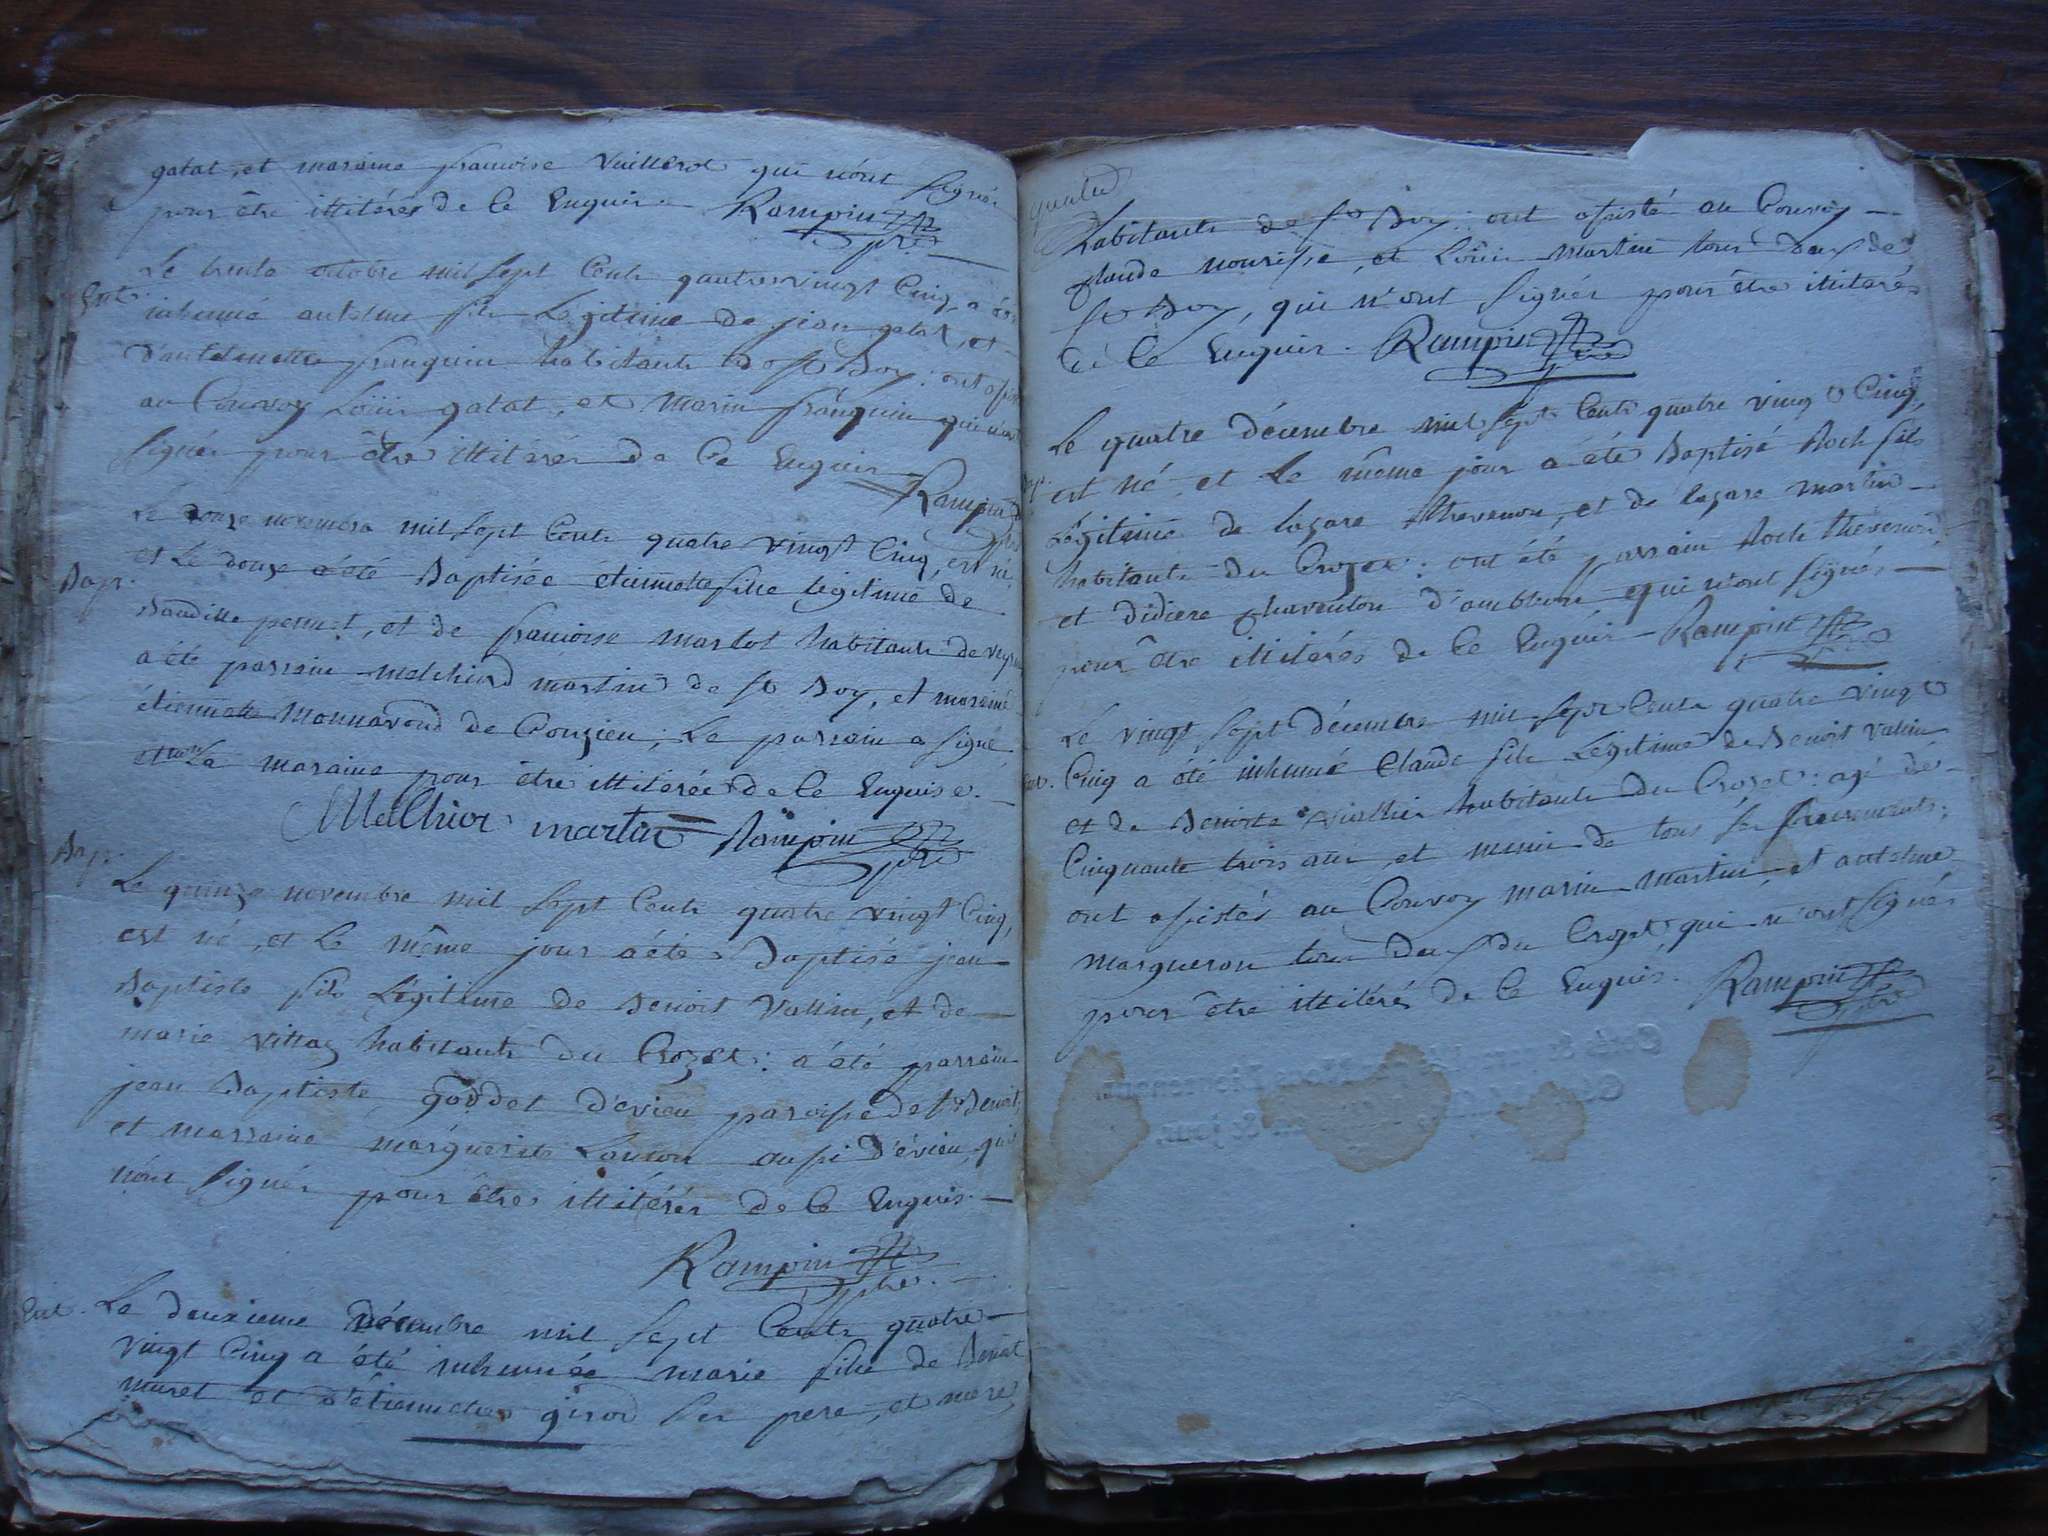 galat, et maraine francoise vuillerot qui n'ont signés
pour être illiterés de ce Enquis. Rampin
ptre
Ent. Le trente octobre mil sept cents quatrevingt cinq, a été
inhumé antelme fils Légitime de jean galat, et
d'antelmette franquin habitants de st Boy: ont assisté
au Convoy Loüis galat, et Marin franquin qui n'ont
signés pour être illiterés de ce Enquis
Rampin
ptre
Le onze novembre mil sept Cents quatre vingt Cinq, est né
et Le douze a été Baptisée étiennette fille legitime de
Bap.
Baudille pernet, et de francoise marlot habitants de
a été parrain melchiord martin de st Boy, et maraine
étiennette Monnavand de Conzieu; Le parrain a signé
et non La maraine pour être illiterée de ce Enquise.
MelChior martin Rampin
ptre
Bap. Le quinze novembre mil sept Cents quatre vingt Cinq,
est né, et Le même jour a été Baptisé jean
Baptiste fils Légitime de Benoit Vallin, et de
marie Vittoz habitants du Crozet: a été parrain
jean Baptiste goddet d'evieu paroisse de st Benoit,
et marraine marguerite Loucon aussi d'évieu, qui
n'ont signés pour êtres illitérés de ce Enquis.
Rampin
ptre.
Ent. Le deuxieme Décembre mil sept Cents quatre
vingt Cinq a été inhumée marie fille de Benoit
muret et d'étiennette girod ses pere, et mere,
habitants de st Boy: ont assisté au Convoy
Claude nourisse, et Loüis martin tous deux de
st Boy, qui n'ont signés pour être illiterés
de ce Enquis. Rampin
ptre
Le quatre décembre mil sept Cents quatre vingt Cinq,
Bap. est né, et Le même jour a été Baptisé Roch fils
Légitime de lazare thevenon, et de lazare martin
habitants du Crozet: ont été parrain Roch thevenon,
et didiere d'ambleon qui n'ont signés
pour être illiterés de ce Enquis Rampin
ptre
Le vingt sept décembre mil sept Cents quatre vingt
Ent. Cinq a été inhumé Claude fils Légitime de Benoit Vallin
et de Benoite habitants du Crozet: agé de
Cinquante trois ans, et muni de tous ses sacrements:
ont assistés au Convoy marin martin, et antelme
Margueron tous deux du Crozet, qui n'ont signés
pour être illitérés de ce Enquis. Rampin
ptre